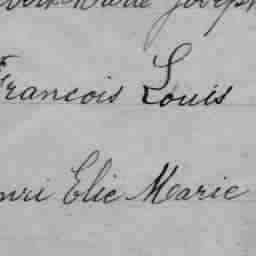 Marie Joseph
François Louis
Elie Marie